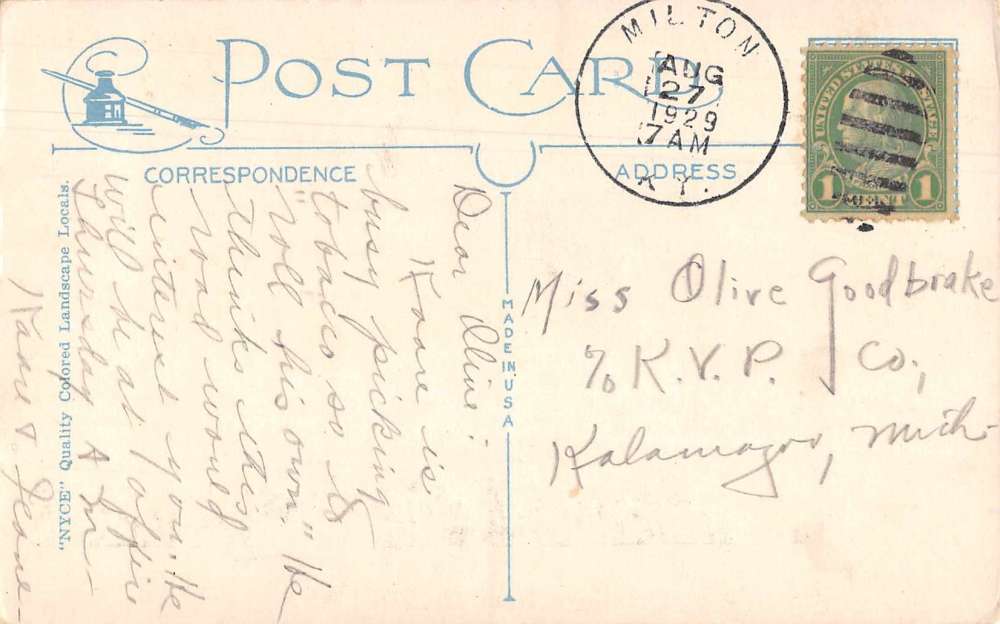 POST CARD
CORRESPONDENCE
ADDRESS
MILTON
AUG
27
1929
7 AM
KY.
UNITED STATES POSTAGE
1 CENT 1
Dear Olive:
Kaare is
busy picking
tobacco so to
"roll his own." He
thinks this
road would
interest you. He
will be at office
Thursday A.M.
Kaare & Jeanne
Miss Olive Goodbrake
% K.V.P. Co.,
Kalamazoo, Mich.
MADE IN USA
"NYCE" Quality Colored Landscape Locals.